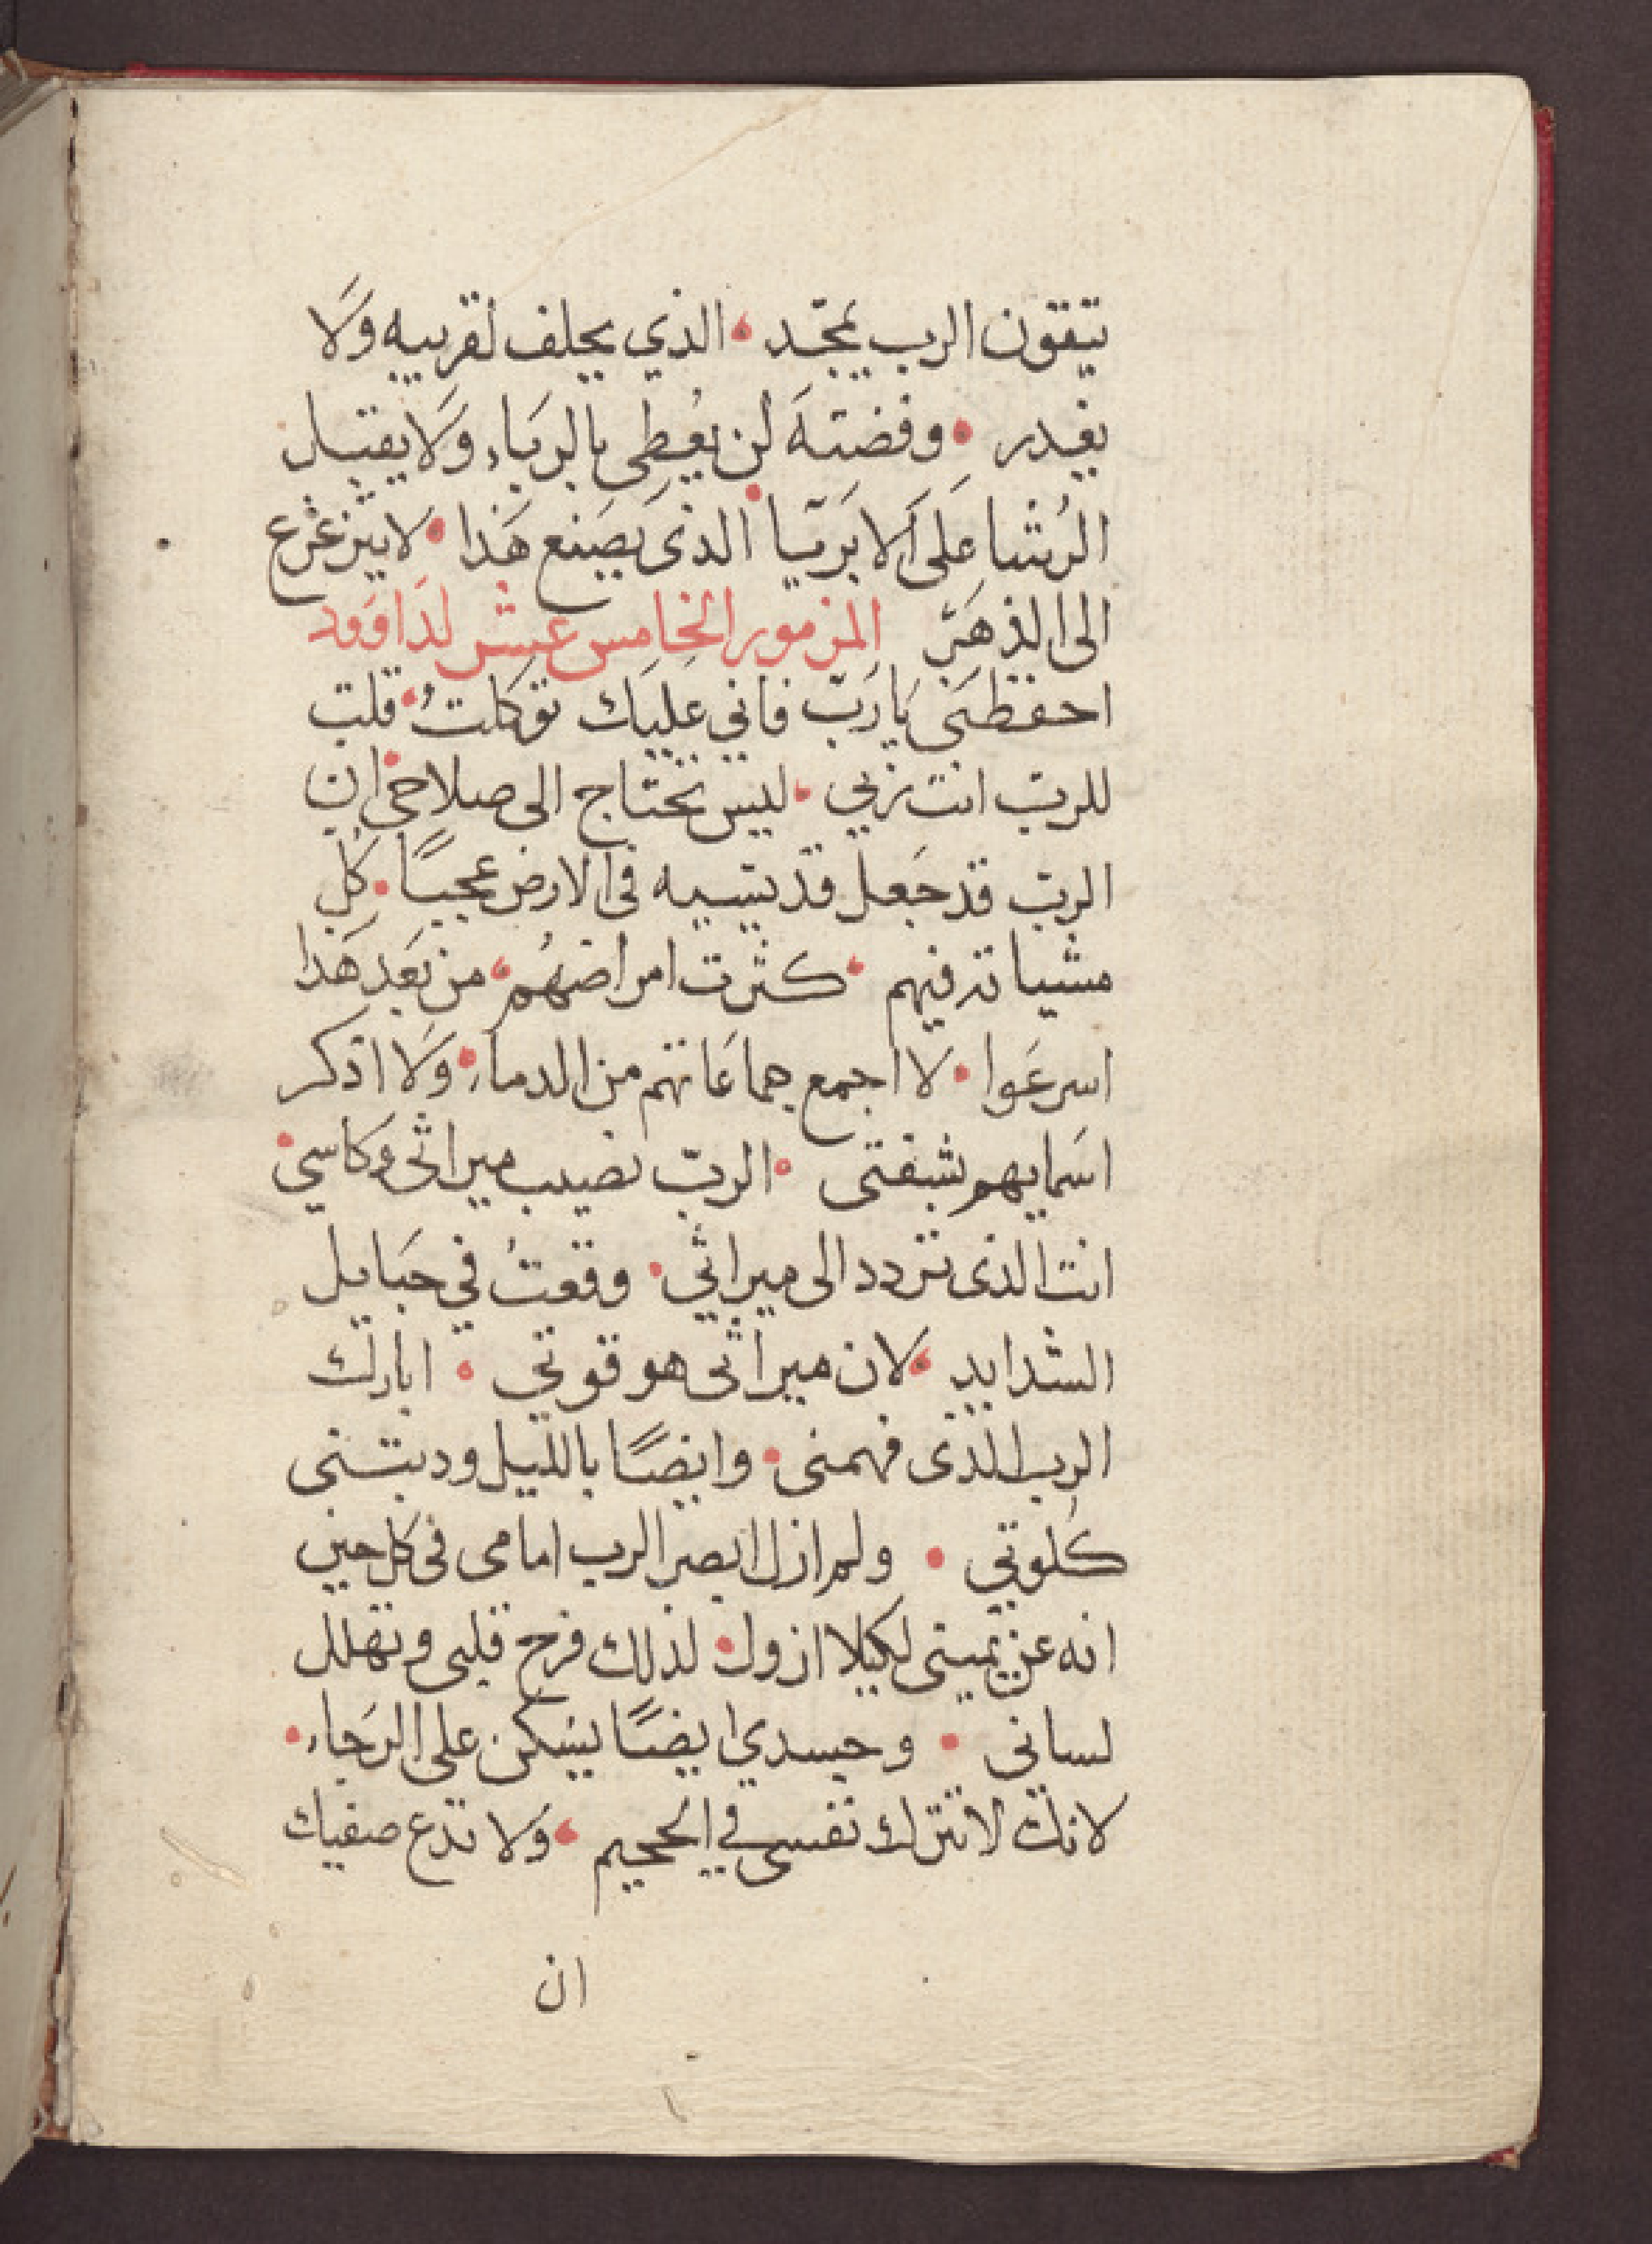 يتقون الرب يمجّد • الذي يحلف لقريبه وَلَا
يغدر • وفضتهَ لن يُعطِى بالربَاءِ وَلَا يقبل
الرُشا عَلى الابَريَا • الذىَ يصَنع هَذا • لا يتزعزع
الى الدهَرّ المزمور الخامس عشر لدَاوَود
احفظنَى يَا رَبّ فانى عَليَك توَكلتُ • قلت
للربّ انت ربي • ليس تحتاج الى صلاحي • ان
الربّ قد جَعل قديسيه فى الارض عجباً • كل
مشياته فيهم • كثرت امراضهُم • من بَعَد هَذا
اسرعَوا • لا اجمع جماعَاتهم من الدماءِ • وَلا اذكر
اسَمايهم بشفتى • الربّ نصيب ميراثى وَكاسي •
انت الذى تردد الى ميراثي • وقعتُ في حبَايل
الشدايد • لان ميراثى هو قوتي • ابارك
الرب الذى فهمنى • وايضاً بالليل ودبتنى
كلوتي • ولم ازل ابصر الرب امامى فى كل حين
انه عن يمينى لكيلا ازول • لذلك فرح قلبى وتهلل
لسانى • وجسدي ايضاً يسكن على الرَجاءِ •
لانك لا تترك نفسى في الجحيم • وَلا تدع صفيك
ان